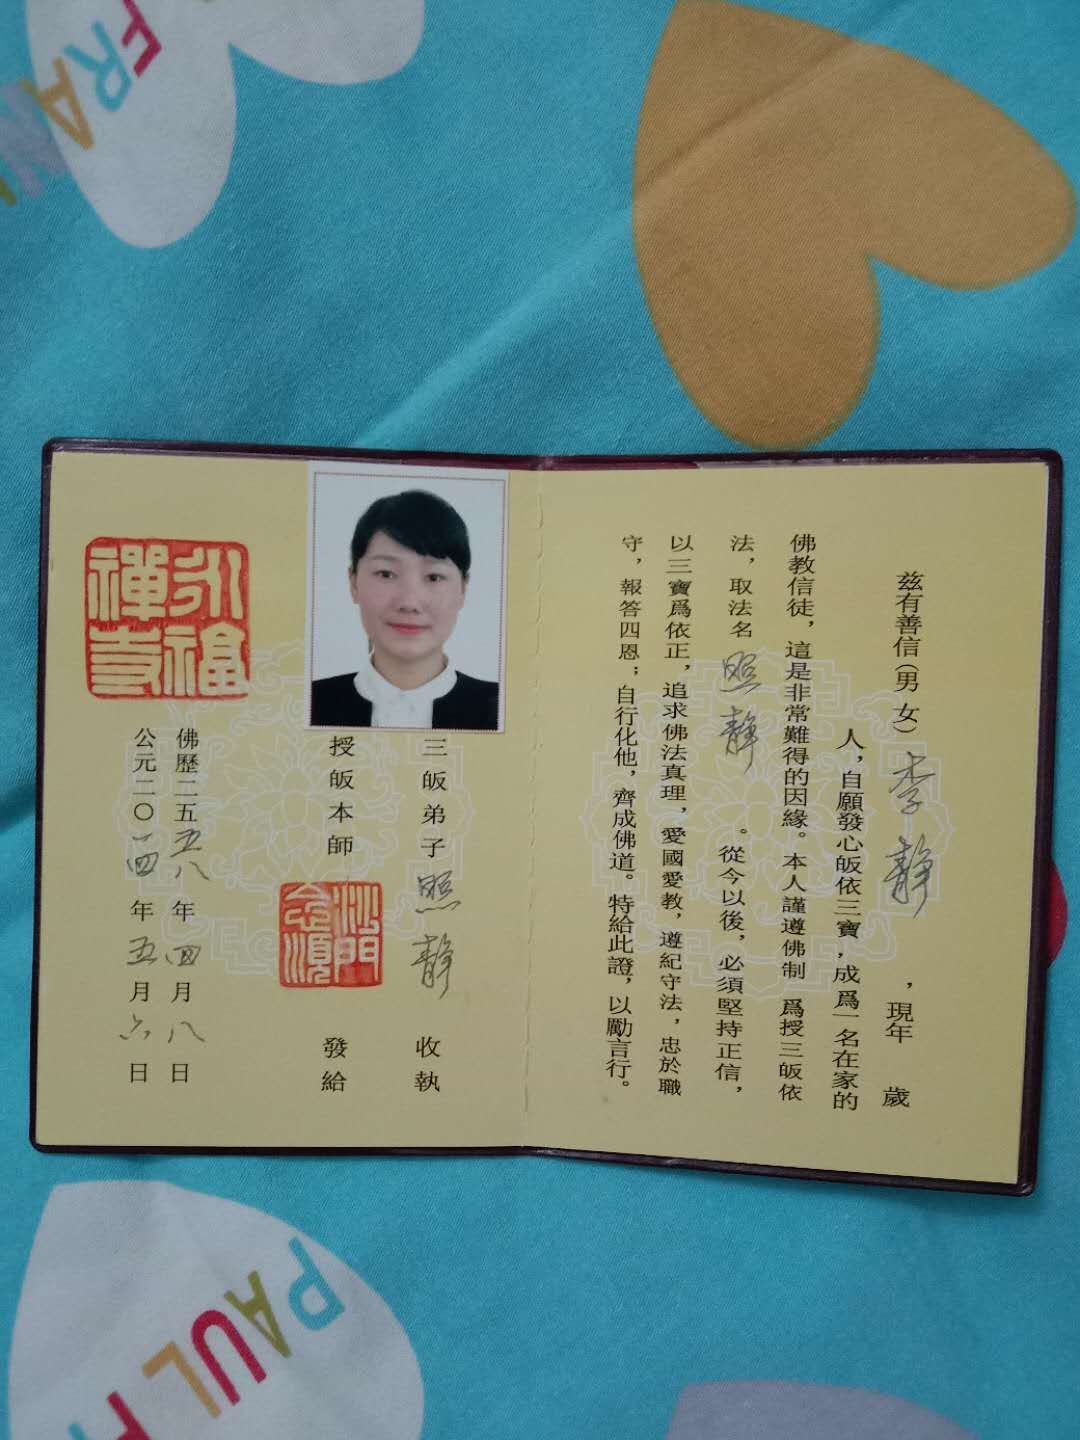 茲有善信(男 女) 李靜 ，現年 歲
人，自願發心皈依三寶，成爲一名在家的
佛教信徒，這是非常難得的因緣。本人謹遵佛制 爲授三皈依
法，取法名 照靜 。從今以後，必須堅持正信，
以三寶爲依正，追求佛法真理，愛國愛教，遵紀守法，忠於職
守，報答四恩；自行化他，齊成佛道。特給此證，以勵言行。
三皈弟子 照靜 收執
授皈本師 發給
沙門
念順
佛歷二五五八年四月八日
公元二〇一四年五月六日
永福
禪寺
FRAN
PAUL FR